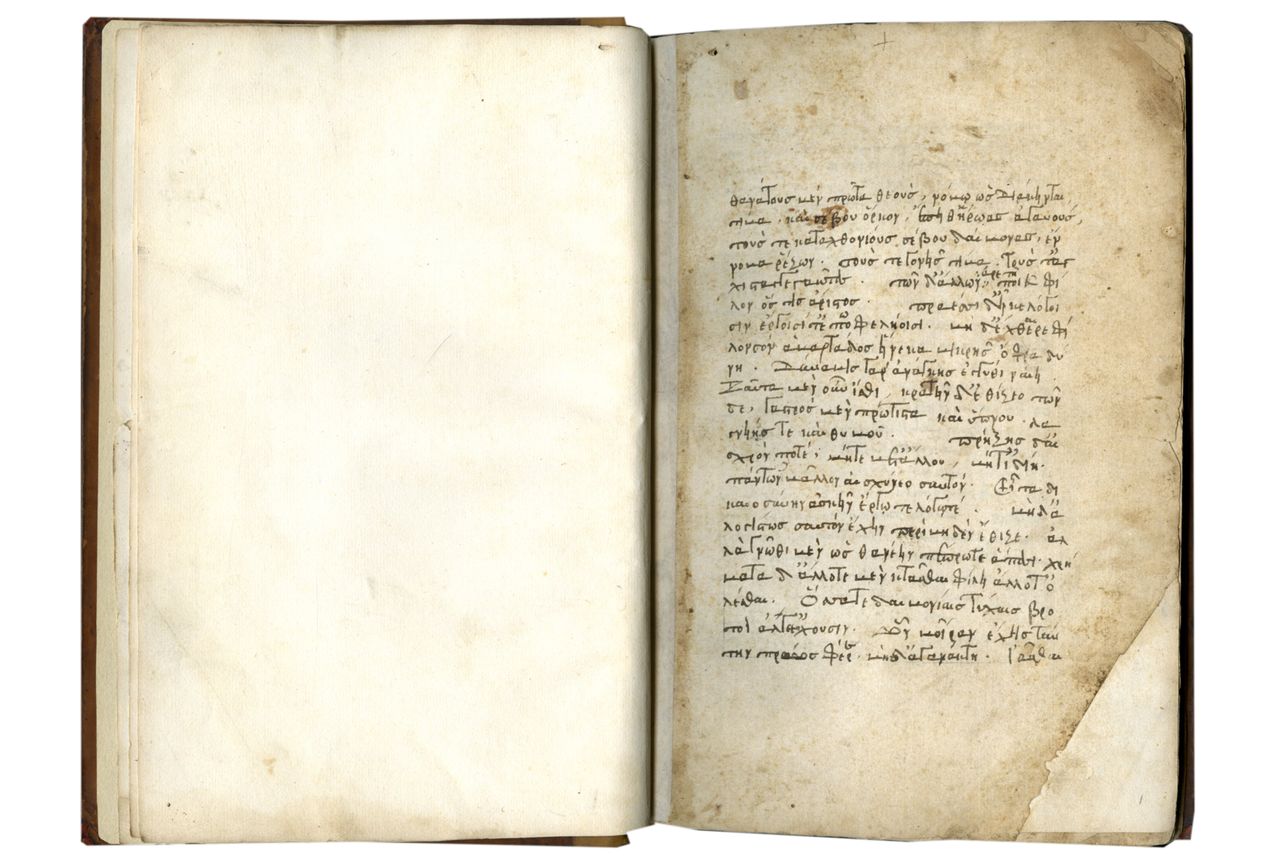 θανάτους μὲν πρῶτα θεοὺς, νόμῳ ὡς διάκηνται
τίμα. καὶ σέβου ὅρκον, ἔπιθ' ἥρωας ἀγαυούς,
τούς τε καταχθονίους σέβου δαίμονας, ἔν
νομα ῥέζων. τούς τε γονῆς τίμα. τούς τ' ἄγ
χιστ' ἐκγεγαῶτας. τῶν δ' ἄλλων ἀρετῆ ποιεῦ φί
λον ὅς τις ἄριστος. πραέσι δ' ἦκε λόγοι
σιν ἔργοισί τ' ἐπωφελήοισι. μὴ δ' ἔχθαιρε φί
λον σὸν ἁμαρτάδος ἥνεκα μικρῆς ὄφρα δύ
νη. δύναμις γὰρ ἀνάγκης ἐγγύθι ναίη.
Ταῦτα μὲν οὕτω ἴσθι, κρατῆν δ' ἐθίζεο τῶν
δε, γαστρὸς μὲν πρώτιστα καὶ ὕπνου. λα
γνήης τε καὶ θυμοῦ. πρήξης δ' αἰ
σχρόν ποτέ, μήτε μετ' ἄλλου, μήτ' ἰδίη.
πάντων μάλιστ' αἰσχύνεο σαυτόν. Εἶτα δι
καιοσύνην ἀσκῆν ἔργω τε λόγω τέ. μὴ δ' ἀ
λογίστως σαυτὸν ἔχην περὶ μηδὲν ἔθιζε. ἀλ
λὰ γνῶθι μὲν ὡς θανέην πέπρωται ἅπασι. χρή
ματα δ' ἄλλοτε μὲν κτᾶσθαι φιλῆ ἄλλοτ' ὀ
λέσθαι. Ὅσσα τε δαιμονίαις τύχαις βρο
τοὶ ἄλγε' ἔχουσιν. ὧν μοῖραν ἔχης ταύ
την πράως φέρε. μὴ δ' ἀγανάκτη. ἰᾶσθαι